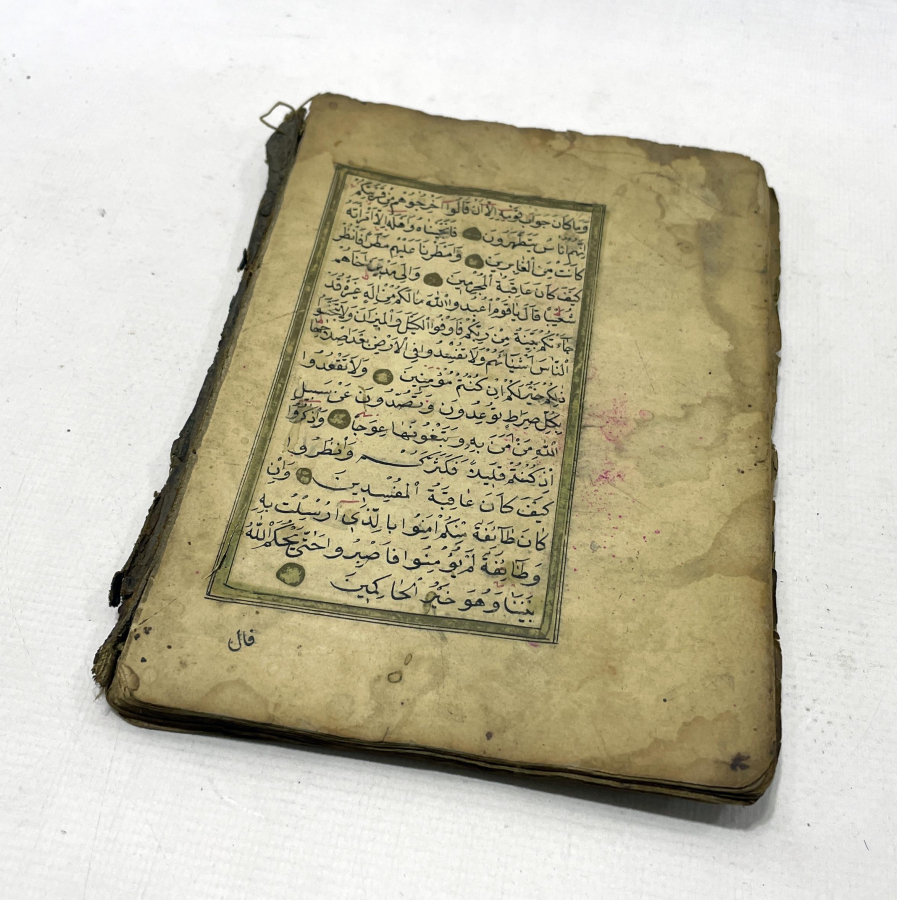 وَمَا كَانَ جَوَابَ قَوْمِهِ اِلَّا اَنْ قَالُوا اَخْرِجُوهُمْ مِنْ قَرْيَتِكُمْ
اِنَّهُمْ اُنَاسٌ يَتَطَهَّرُونَ فَاَنْجَيْنَاهُ وَاَهْلَهُ اِلَّا امْرَاَتَهُ
كَانَتْ مِنَ الْغَابِرِينَ وَاَمْطَرْنَا عَلَيْهِمْ مَطَرًا فَانْظُرْ
كَيْفَ كَانَ عَاقِبَةُ الْمُجْرِمِينَ وَاِلٰى مَدْيَنَ اَخَاهُمْ
شُعَيْبًا قَالَ يَا قَوْمِ اعْبُدُوا اللّٰهَ مَا لَكُمْ مِنْ اِلٰهٍ غَيْرُهُ قَدْ
جَاءَتْكُمْ بَيِّنَةٌ مِنْ رَبِّكُمْ فَاَوْفُوا الْكَيْلَ وَالْمِيزَانَ وَلَا تَبْخَسُوا
النَّاسَ اَشْيَاءَهُمْ وَلَا تُفْسِدُوا فِي الْاَرْضِ بَعْدَ اِصْلَاحِهَا
ذٰلِكُمْ خَيْرٌ لَكُمْ اِنْ كُنْتُمْ مُؤْمِنِينَ وَلَا تَقْعُدُوا
بِكُلِّ صِرَاطٍ تُوعِدُونَ وَتَصُدُّونَ عَنْ سَبِيلِ
اللّٰهِ مَنْ اٰمَنَ بِهِ وَتَبْغُونَهَا عِوَجًا وَاذْكُرُوا
اِذْ كُنْتُمْ قَلِيلًا فَكَثَّرَكُمْ وَانْظُرُوا
كَيْفَ كَانَ عَاقِبَةُ الْمُفْسِدِينَ وَاِنْ
كَانَ طَائِفَةٌ مِنْكُمْ اٰمَنُوا بِالَّذِي اُرْسِلْتُ بِهِ
وَطَائِفَةٌ لَمْ يُؤْمِنُوا فَاصْبِرُوا حَتّٰى يَحْكُمَ اللّٰهُ
بَيْنَنَا وَهُوَ خَيْرُ الْحَاكِمِينَ
قال